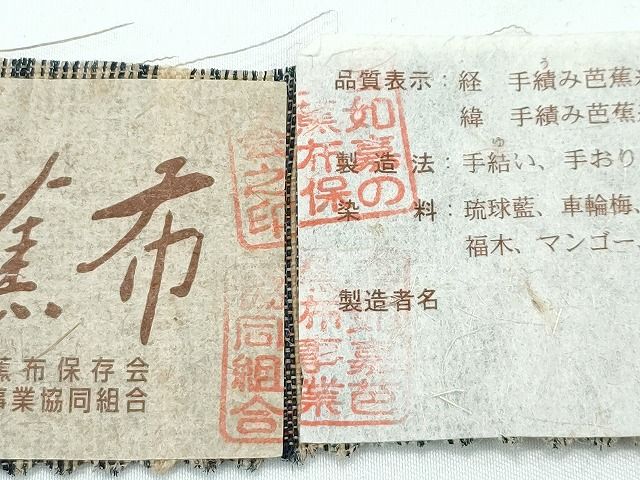 蕉布
蕉布保存会
事業協同組合
品質表示：経　手績み芭蕉
う
緯　手績み芭蕉
製造法：手結い、手おり
ゆ
染料：琉球藍、車輪梅、
福木、マンゴー
製造者名
如嘉の
蕉布保
会之印
嘉芭
布事業
同組合